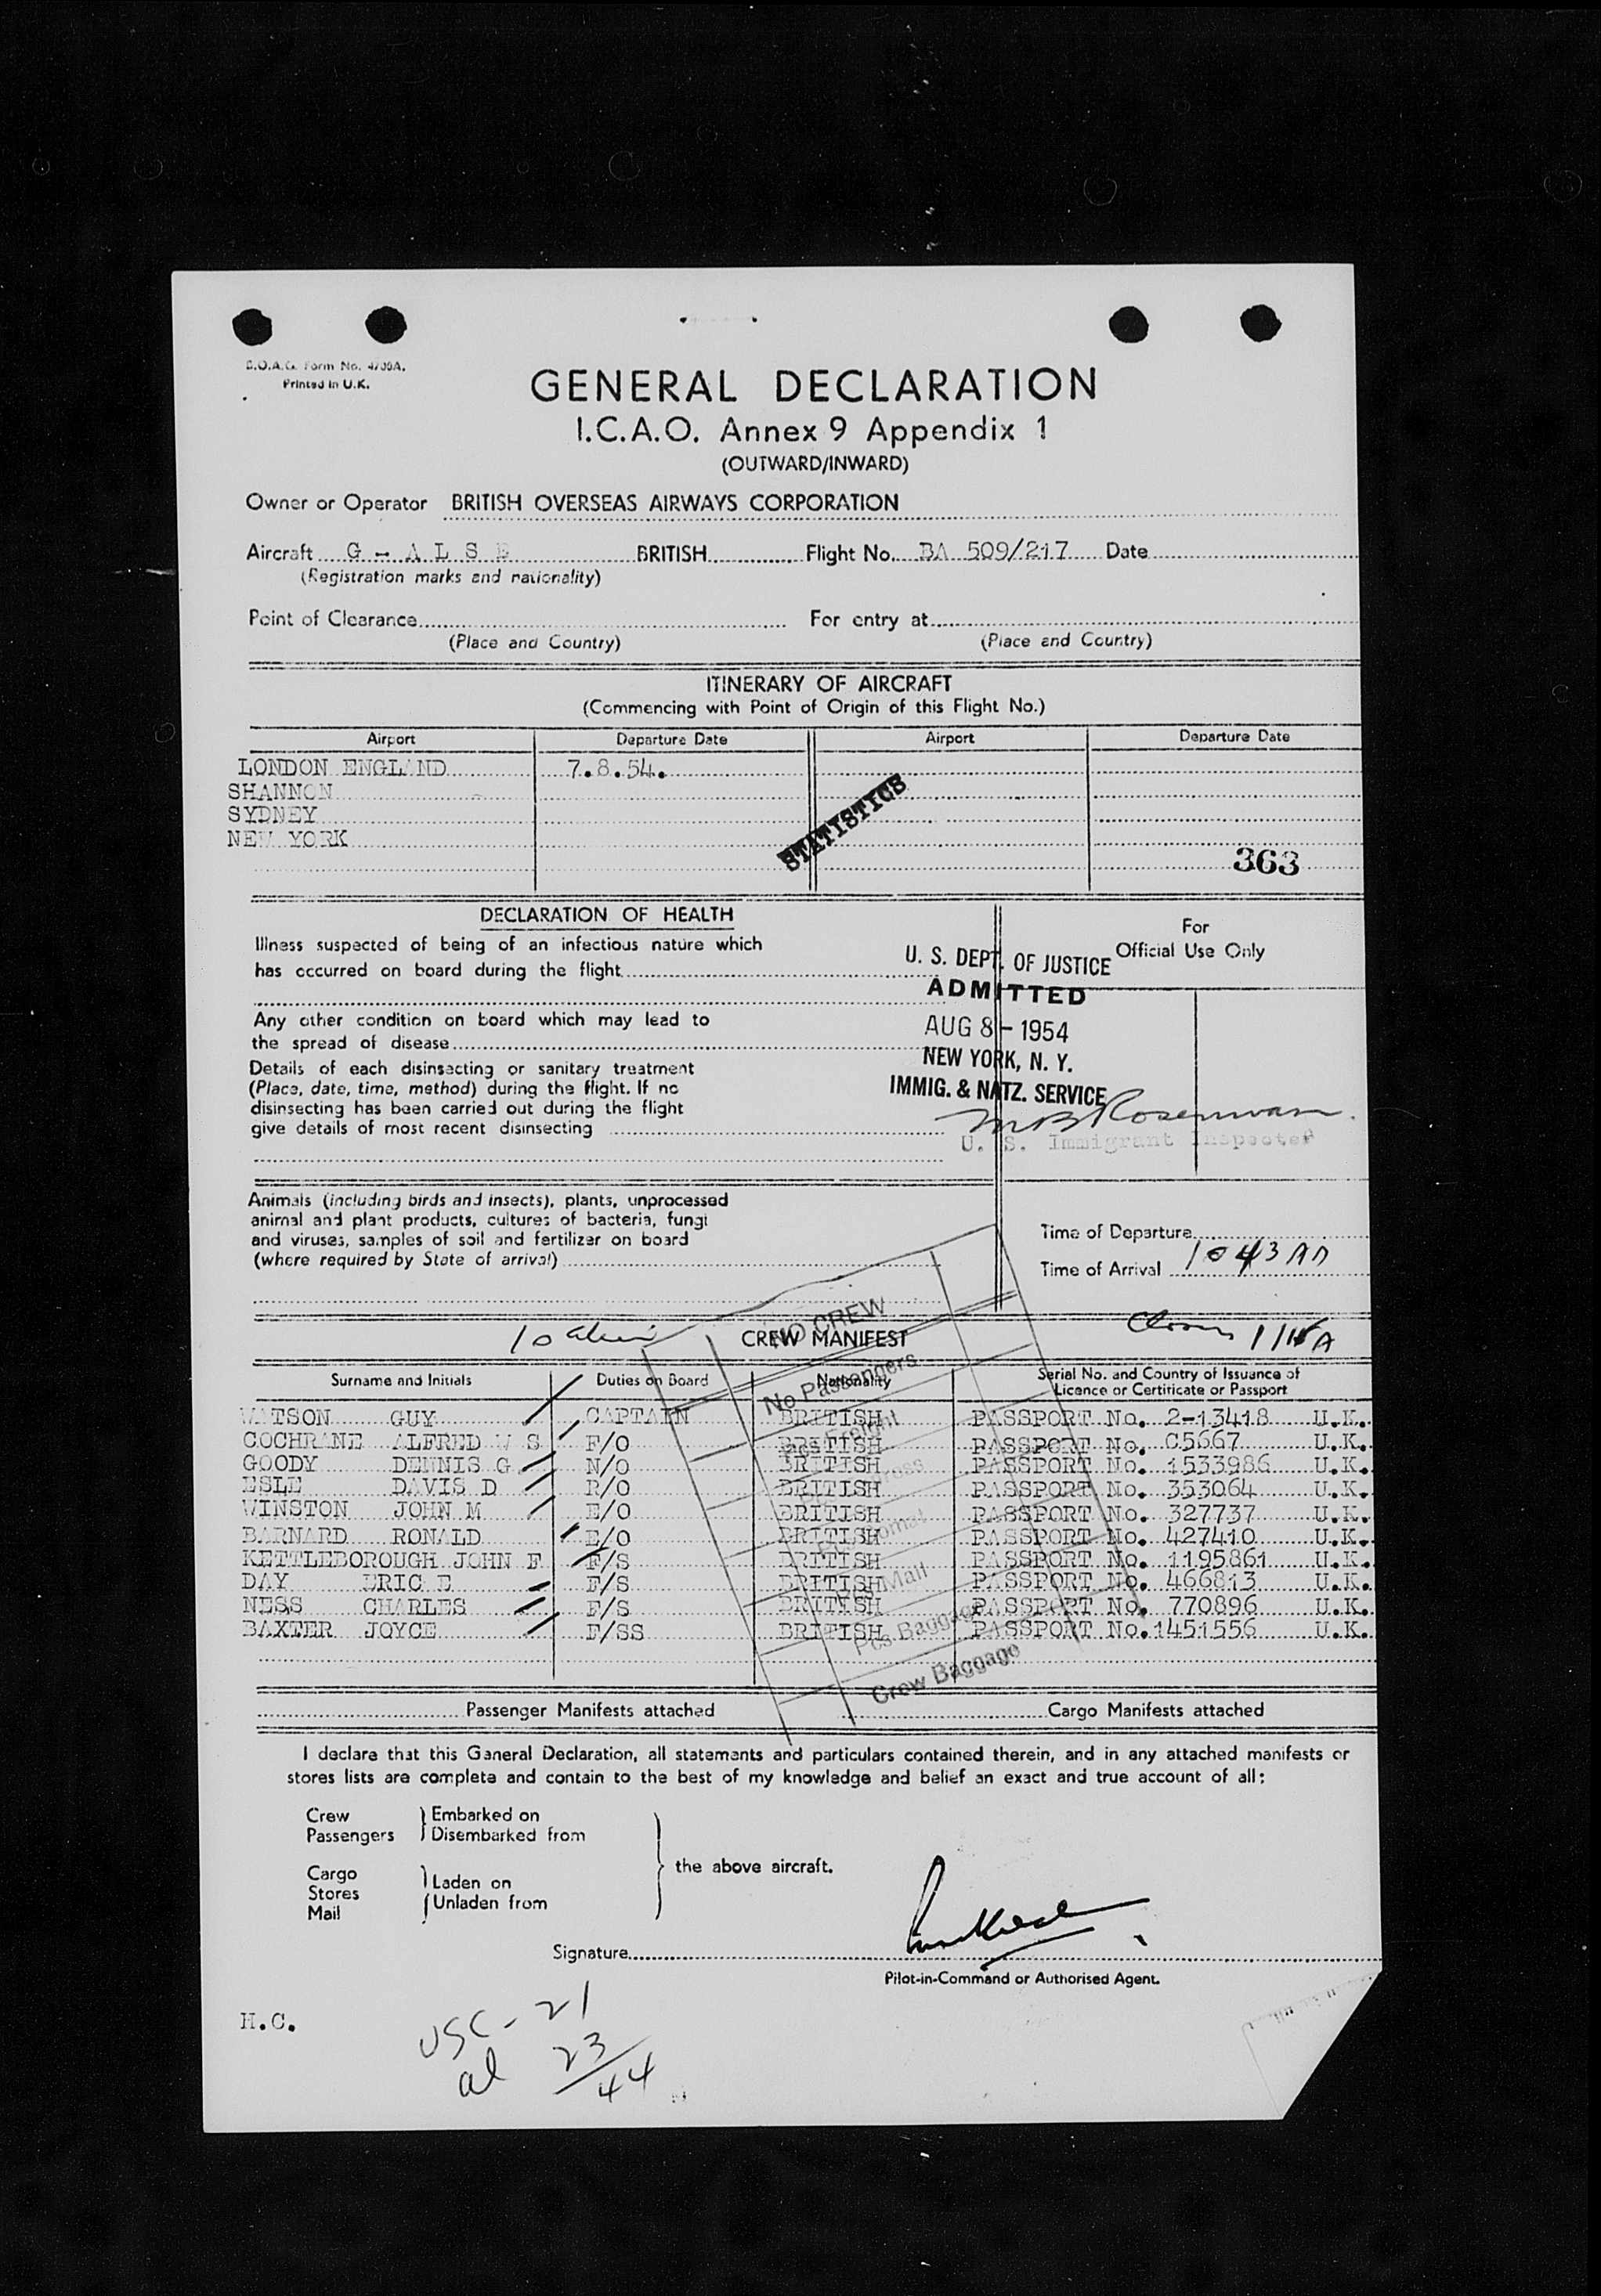 B.O.A.C. Form No. 4706A.
Printed in U.K.
GENERAL DECLARATION
I.C.A.O. Annex 9 Appendix 1
(OUTWARD/INWARD)
Owner or Operator BRITISH OVERSEAS AIRWAYS CORPORATION
Aircraft G - A L S E BRITISH Flight No. BA 509/217 Date
(Registration marks and nationality)
Point of Clearance For entry at
(Place and Country) (Place and Country)
ITINERARY OF AIRCRAFT
(Commencing with Point of Origin of this Flight No.)
Airport Departure Date Airport Departure Date
LONDON ENGLAND 7.8.54.
SHANNON
SYDNEY
NEW YORK
STATISTICS
363
DECLARATION OF HEALTH
Illness suspected of being of an infectious nature which
has occurred on board during the flight
Any other condition on board which may lead to
the spread of disease
Details of each disinsecting or sanitary treatment
(Place, date, time, method) during the flight. If no
disinsecting has been carried out during the flight
give details of most recent disinsecting
For
Official Use Only
U. S. DEPT. OF JUSTICE
ADMITTED
AUG 8 - 1954
NEW YORK, N. Y.
IMMIG. & NATZ. SERVICE
U. S. Immigrant Inspector
Animals (including birds and insects), plants, unprocessed
animal and plant products, cultures of bacteria, fungi
and viruses, samples of soil and fertilizer on board
(where required by State of arrival)
Time of Departure
Time of Arrival 1043 AM
CREW MANIFEST
NO CREW
No Passengers
Pcs Freight
Pcs Mail
Pcs Baggage
Crew Baggage
Surname and Initials Duties on Board Nationality Serial No. and Country of Issuance of
Licence or Certificate or Passport
WATSON GUY CAPTAIN BRITISH PASSPORT No. 2-13418 U.K.
COCHRANE ALFRED W S F/O BRITISH PASSPORT No. C5667 U.K.
GOODY DENNIS G N/O BRITISH PASSPORT No. 1533986 U.K.
ESLE DAVIS D R/O BRITISH PASSPORT No. 353064 U.K.
WINSTON JOHN M E/O BRITISH PASSPORT No. 327737 U.K.
BARNARD RONALD E/O BRITISH PASSPORT No. 427410 U.K.
KETTLEBOROUGH JOHN F F/S BRITISH PASSPORT No. 1195861 U.K.
DAY ERIC E F/S BRITISH PASSPORT No. 466813 U.K.
NESS CHARLES F/S BRITISH PASSPORT No. 770896 U.K.
BAXTER JOYCE F/SS BRITISH PASSPORT No. 1451556 U.K.
Passenger Manifests attached Cargo Manifests attached
I declare that this General Declaration, all statements and particulars contained therein, and in any attached manifests or
stores lists are complete and contain to the best of my knowledge and belief an exact and true account of all:
Crew Embarked on
Passengers Disembarked from
the above aircraft.
Cargo Laden on
Stores Unladen from
Mail
Signature
Pilot-in-Command or Authorised Agent.
H.C.
USC - 21
al 23
44